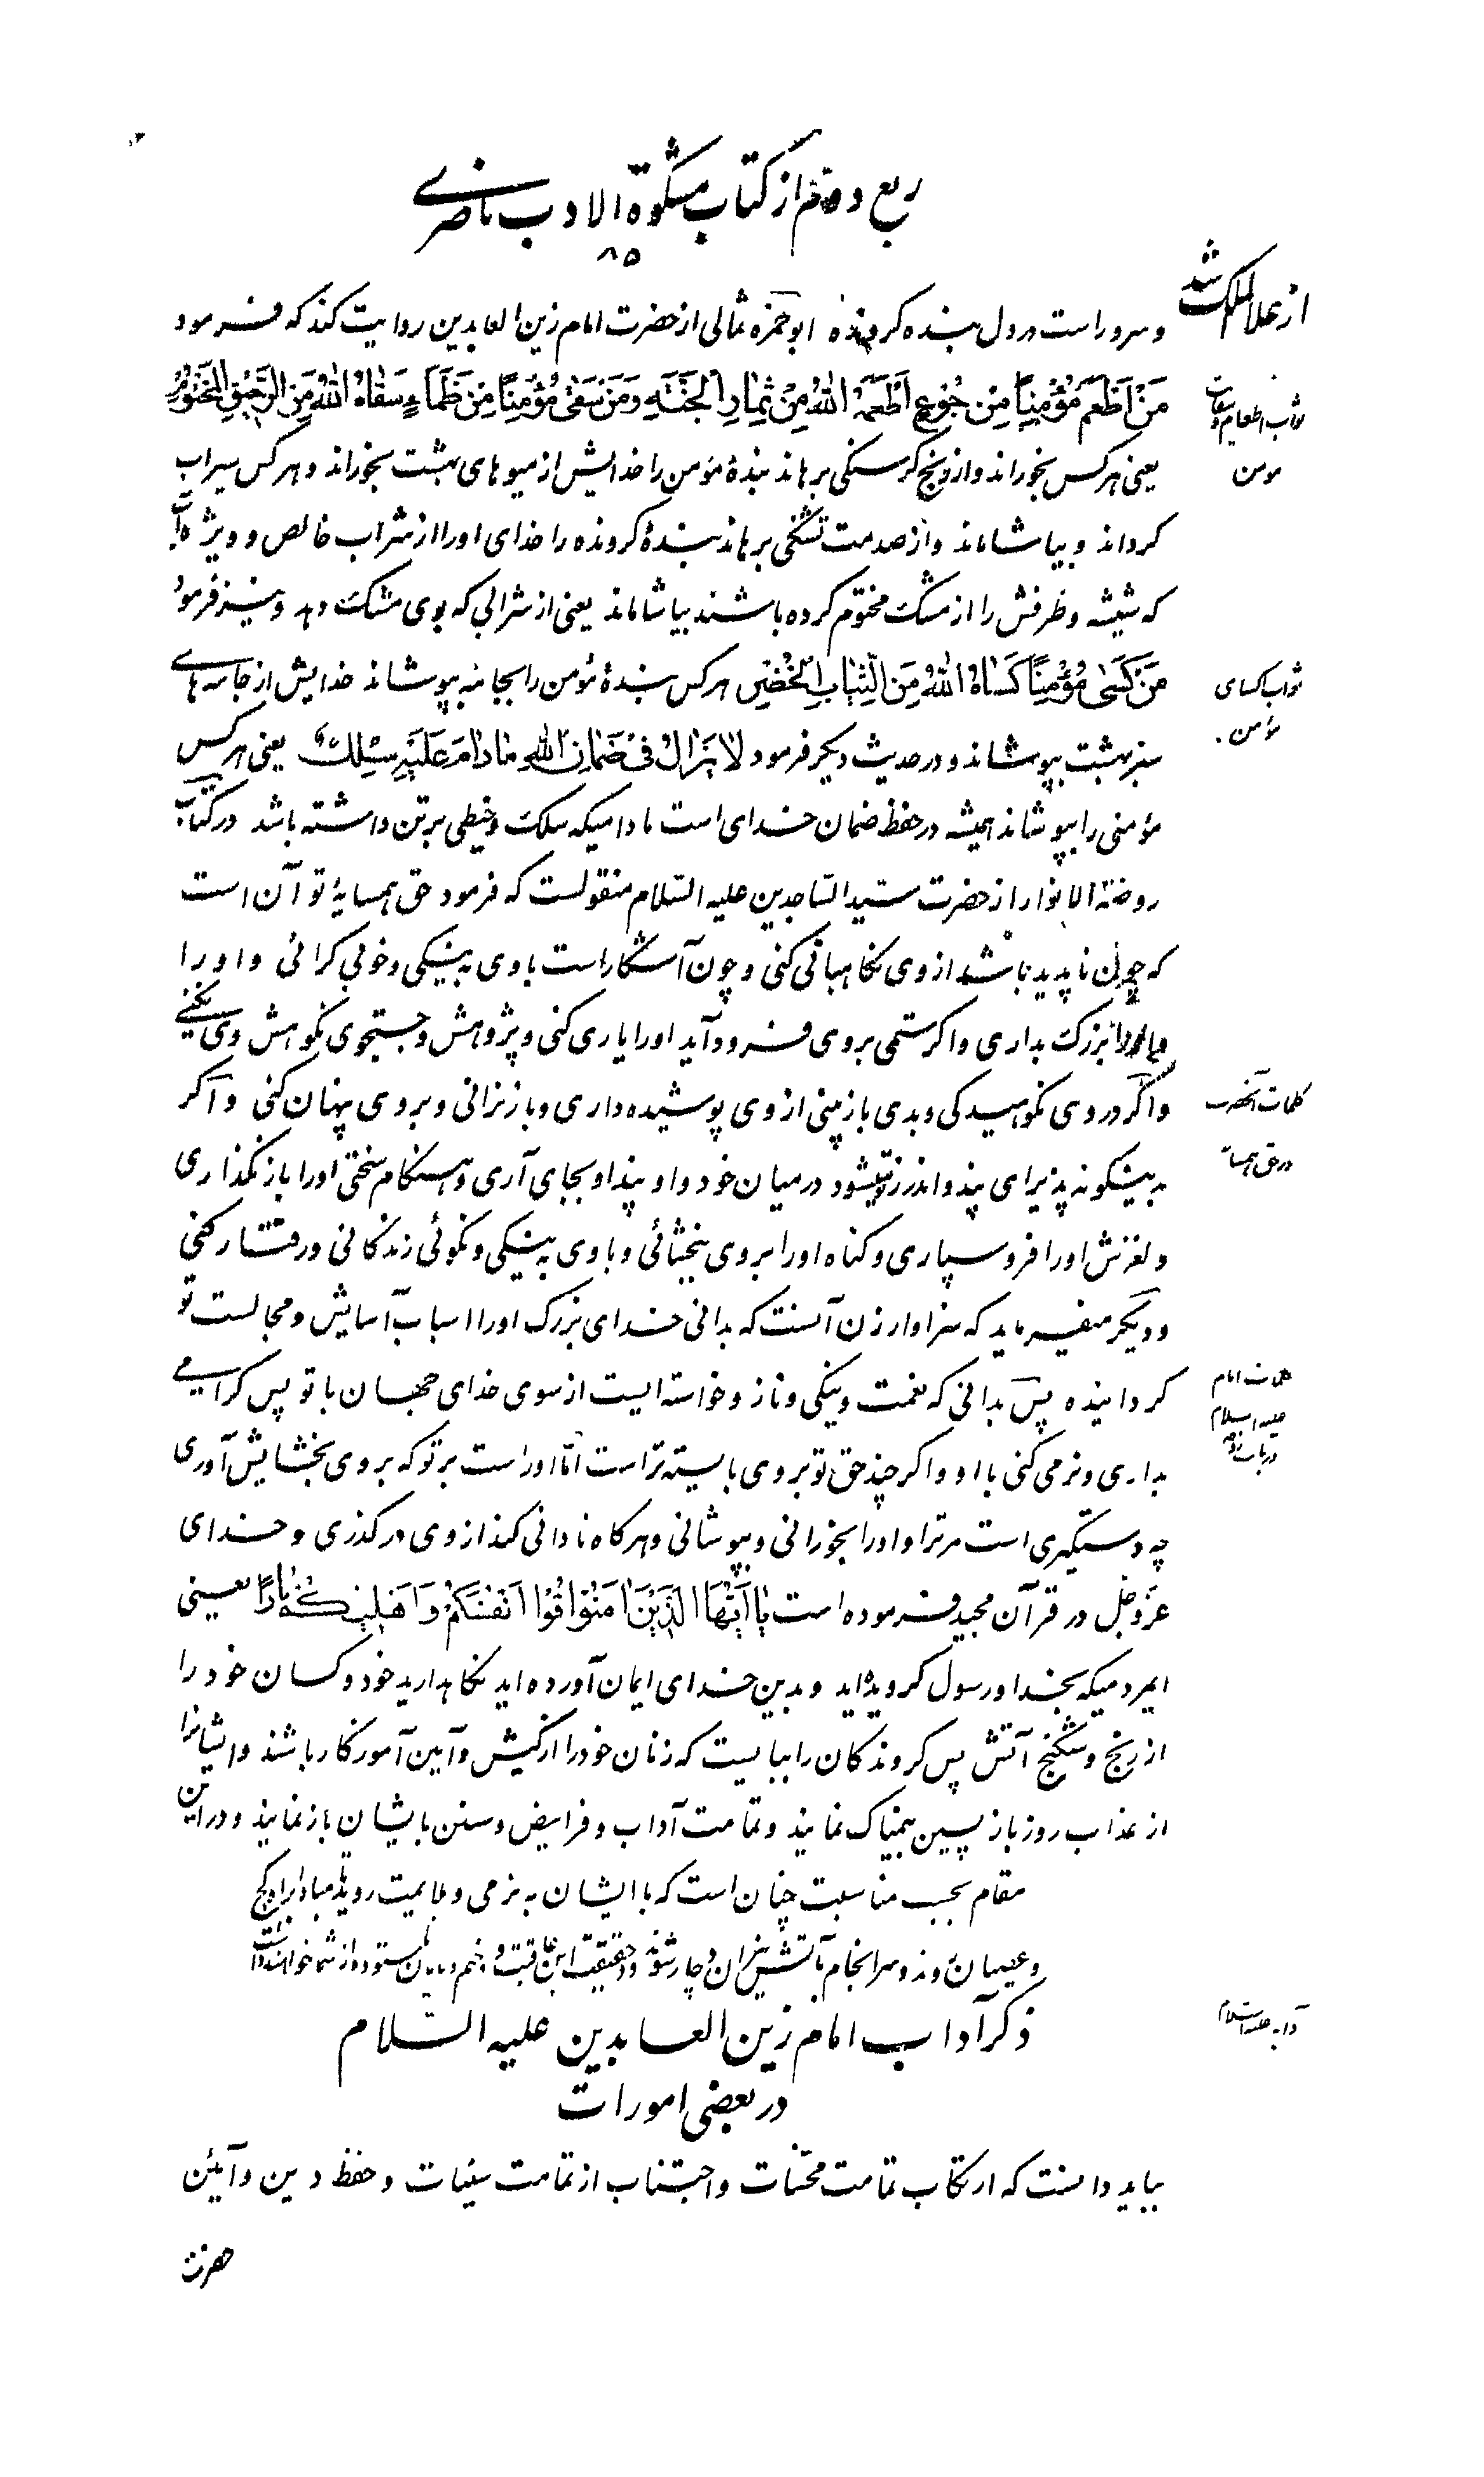 ربع دوم از کتاب مشکوة الادب ناصری
۸۵
از علاء الملک شد
و سرور است در دل بنده کرونده ابو حمزه ثمالی از حضرت امام زین العابدین روایت کند که فرمود
مَنْ اَطْعَمَ مُؤْمِنًا مِنْ جُوعٍ اَطْعَمَهُ اللهُ مِنْ ثِمَارِ الْجَنَّةِ وَمَنْ سَقٰی مُؤْمِنًا مِنْ ظَمَاءٍ سَقَاهُ اللهُ مِنَ الرَّحِیقِ الْمَخْتُومِ
ثواب اطعام و سقایت
مومن
یعنی هر کس بخوراند و از رنج کرسنکی برهاند بندۀ مؤمن را خدایش از میوهای بهشت بخوراند و هر کس سیراب
کرداند و بیاشاماند و از صدمت تشنکی برهاند بندۀ کرونده را خدای او را از شراب خالص و ویژه
که شیشه و ظرفش را از مشک مختوم کرده باشند بیاشاماند یعنی از شرابی که بوی مشک دهد و نیز فرمود
مَنْ کَسٰی مُؤْمِنًا کَسَاهُ اللهُ مِنَ الثِّیَابِ الْخُضْرِ هر کس بندۀ مؤمن را بجامه بپوشاند خدایش از جامه های
ثواب کسای
مؤمن.
سبز بهشت بپوشاند و در حدیث دیکر فرمود لَا یَزَالُ فِی ضَمَانِ اللهِ مَا دَامَ عَلَیْهِ سِلْكٌ یعنی هر کس
مؤمنی را بپوشاند همیشه در حفظ ضمان خدای است مادامیکه سلک و خیطی بر تن داشته باشد در کتاب
روضة الانوار از حضرت سید الساجدین علیه السلام منقولست که فرمود حق همسایۀ تو آن است
که چون ناپدید باشد از وی نکاهبانی کنی و چون آشکار است با وی به نیکی و خوبی کرائی و او را
بزرک بداری و اکر ستمی بر وی فرود آید او را یاری کنی و پژوهش و جستجوی نکوهش وی نکنی
و اکر در وی نکوهیدکی و بدی باز بینی از وی پوشیده داری و باز نرانی و بر وی پنهان کنی و اکر
کلمات آنحضرت
در حق همسایه
به نیکونه پذیرای پند و اندرز تو میشود در میان خود و او پند او بجای آری و هنکام سختی او را باز نکذاری
و لغزش او را فرو سپاری و کناه او را بر وی ببخشائی و با وی به نیکی و نکوئی زندکانی و رفتار کنی
و دیکر میفرماید که سزاوار زن آنست که بدانی خدای بزرک او را اسباب آسایش و مجالست تو
کردانیده پس بدانی که نعمت و نیکی و ناز و خواسته ایست از سوی خدای جهان با تو پس کرامی
کلمات امام
علیه السلام
در باب زن
بداری و نرمی کنی با او و اکر چند حق تو بر وی بایسته تر است امّا او راست بر تو که بر وی بخشایش آوری
چه دستکیری است مر ترا و او را بخورانی و بپوشانی و هر کاه نادانی کند از وی در کذری و خدای
عزّ و جل در قرآن مجید فرموده است یٰا اَیُّهَا الَّذِینَ اٰمَنُوا قُوا اَنْفُسَکُمْ وَ اَهْلِیکُمْ نَارًا یعنی
ایمردمیکه بخدا و رسول کرویده اید و بدین خدای ایمان آورده اید نکاهدارید خود و کسان خود را
از رنج و شکنج آتش پس کروندکان را ببایست که زنان خود را از کیش و آیین آموزکار باشند و ایشانرا
از عذاب روز باز پسین بیمناک نمایند و تمامت آداب و فرایض و سنن بایشان باز نمایند و در این
مقام بحسب مناسبت چنان است که با ایشان به نرمی و ملایمت روند مبادا براه کج
و عصیان روند و سرانجام بآتش نیران دچار شوند
ذکر آداب امام زین العابدین علیه السلام
آداب علیه السلام
در بعضی امورات
بباید دانست که ارتکاب تمامت محسّنات و اجتناب از تمامت سیئات و حفظ دین و آیین
حضرت